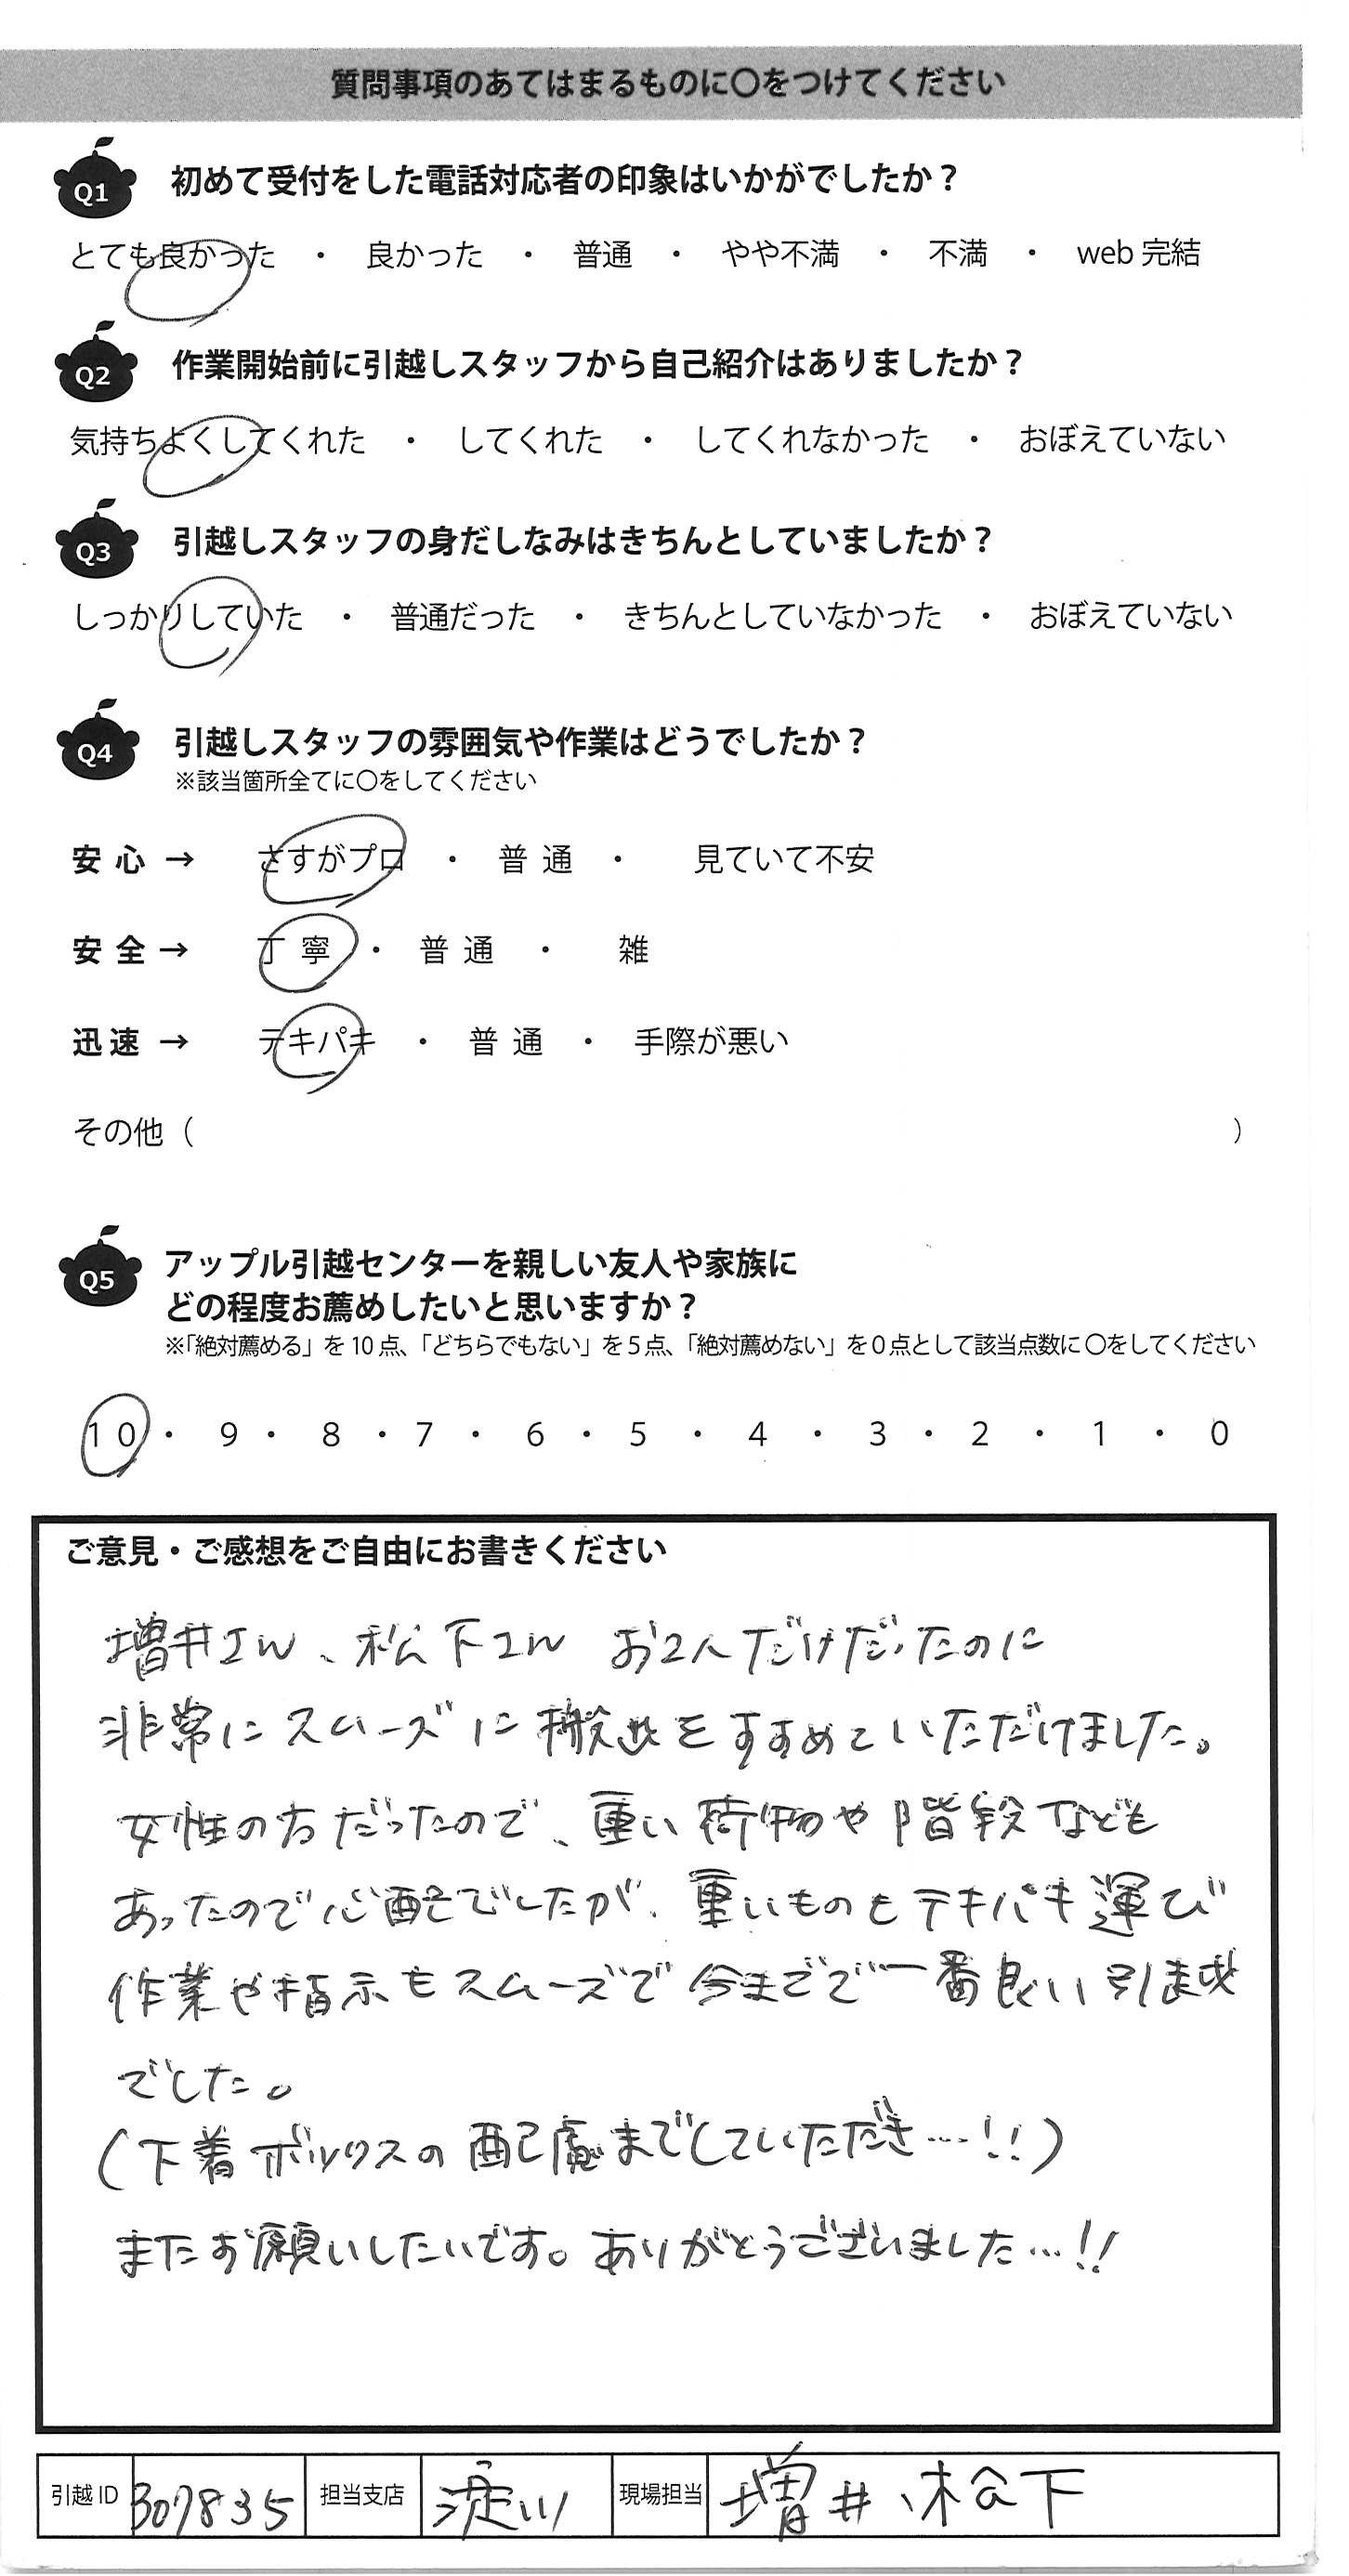 質問事項のあてはまるものに〇をつけてください
Q1 初めて受付をした電話対応者の印象はいかがでしたか？
とても良かった ・ 良かった ・ 普通 ・ やや不満 ・ 不満 ・ web 完結
Q2 作業開始前に引越しスタッフから自己紹介はありましたか？
気持ちよくしてくれた ・ してくれた ・ してくれなかった ・ おぼえていない
Q3 引越しスタッフの身だしなみはきちんとしていましたか？
しっかりしていた ・ 普通だった ・ きちんとしていなかった ・ おぼえていない
Q4 引越しスタッフの雰囲気や作業はどうでしたか？
※該当箇所全てに〇をしてください
安 心 → さすがプロ ・ 普 通 ・ 見ていて不安
安 全 → 丁 寧 ・ 普 通 ・ 雑
迅 速 → テキパキ ・ 普 通 ・ 手際が悪い
その他（ ）
Q5 アップル引越センターを親しい友人や家族に
どの程度お薦めしたいと思いますか？
※「絶対薦める」を 10 点、「どちらでもない」を 5 点、「絶対薦めない」を 0 点として該当点数に 〇をしてください
10 ・ 9 ・ 8 ・ 7 ・ 6 ・ 5 ・ 4 ・ 3 ・ 2 ・ 1 ・ 0
ご意見・ご感想をご自由にお書きください
増井さん、松下さん お2人だけだったのに
非常にスムーズに搬送をすすめていただけました。
女性の方だったので、重い荷物や階段なども
あったので心配でしたが、重いものもテキパキ運び
作業や指示もスムーズで今までで一番良い引越
でした。
(下着ボックスの配慮までしていただき…!!)
またお願いしたいです。ありがとうございました…!!
引越 ID 307835 担当支店 淀川 現場担当 増井、松下